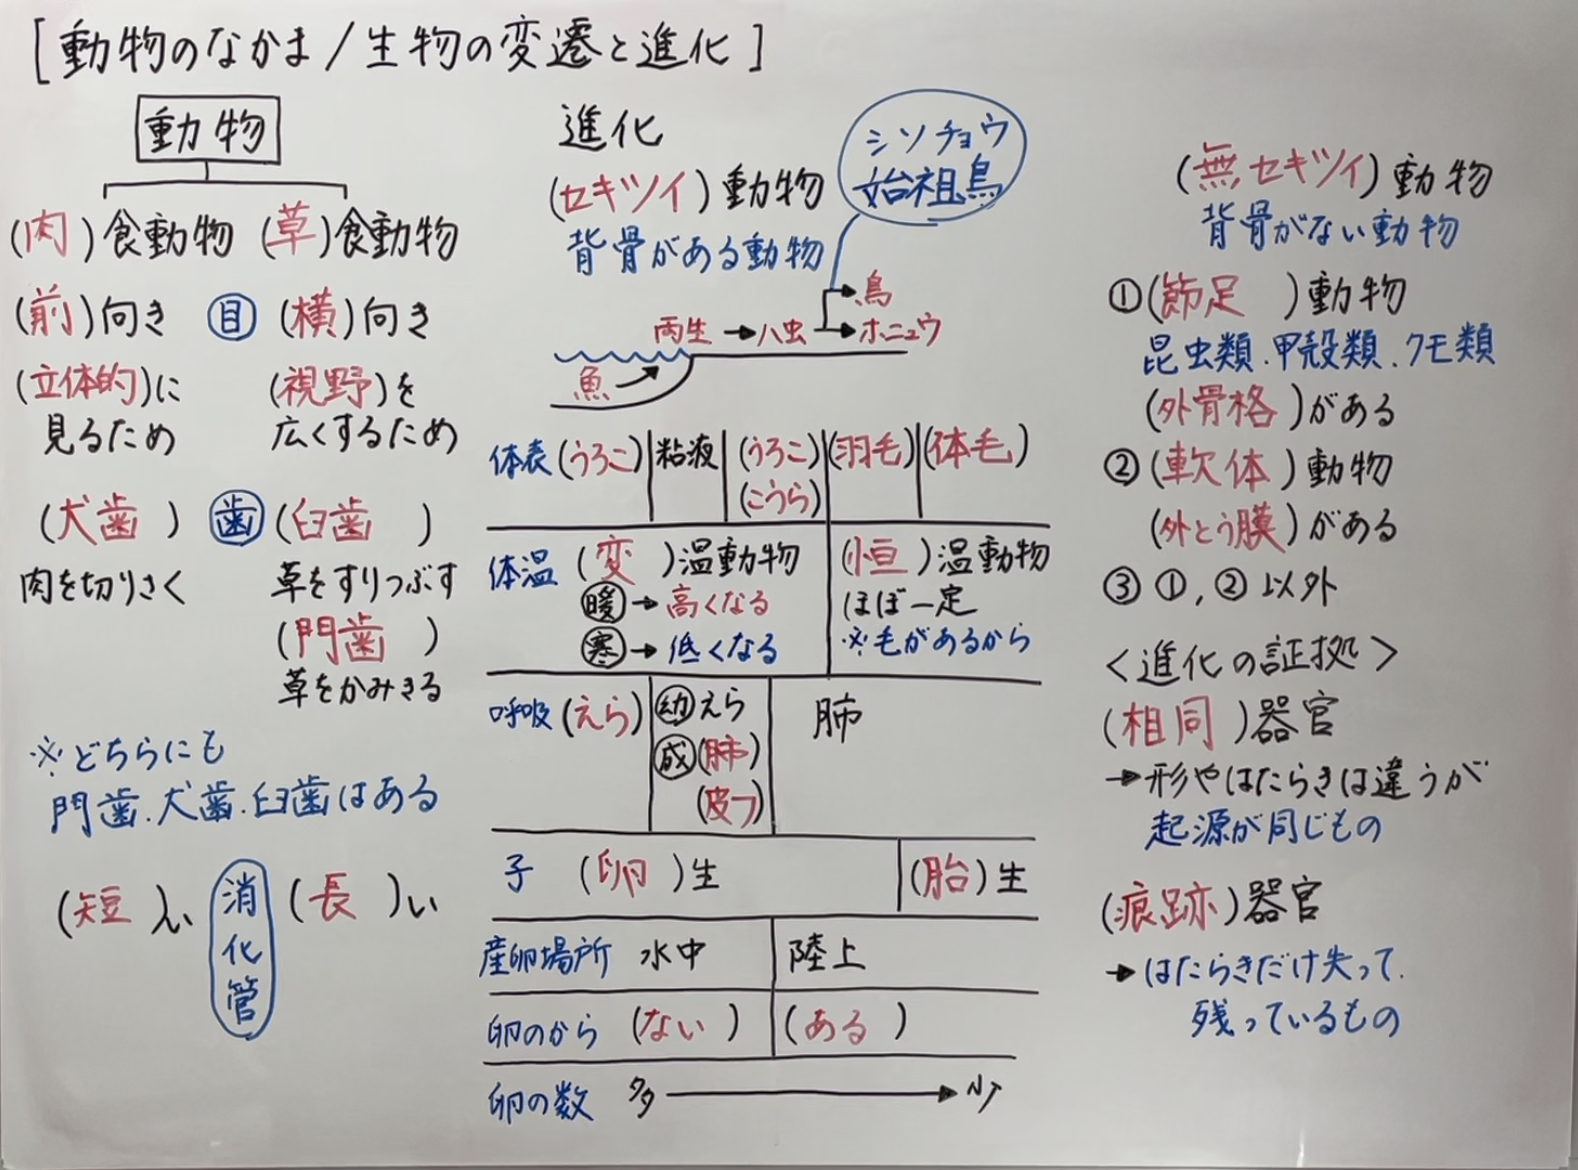 [動物のなかま/生物の変遷と進化]
動物
(肉)食動物 (草)食動物
(前)向き 目 (横)向き
(立体的)に (視野)を
見るため 広くするため
(犬歯) 歯 (臼歯)
肉を切りさく 草をすりつぶす
(門歯)
草をかみきる
※どちらにも
門歯.犬歯.臼歯はある
(短)い 消化管 (長)い
進化
シソチョウ
始祖鳥
(セキツイ)動物
背骨がある動物
鳥
両生→ハ虫→ホニュウ
魚
体表 (うろこ) 粘液 (うろこ) (羽毛) (体毛)
(こうら)
体温 (変)温動物 (恒)温動物
暖→高くなる ほぼ一定
寒→低くなる ※毛があるから
呼吸 (えら) 幼えら 肺
成(肺)
(皮フ)
子 (卵)生 (胎)生
産卵場所 水中 陸上
卵のから (ない) (ある)
卵の数 多→少
(無セキツイ)動物
背骨がない動物
①(節足)動物
昆虫類.甲殻類.クモ類
(外骨格)がある
②(軟体)動物
(外とう膜)がある
③①,②以外
<進化の証拠>
(相同)器官
→形やはたらきは違うが
起源が同じもの
(痕跡)器官
→はたらきだけ失って.
残っているもの